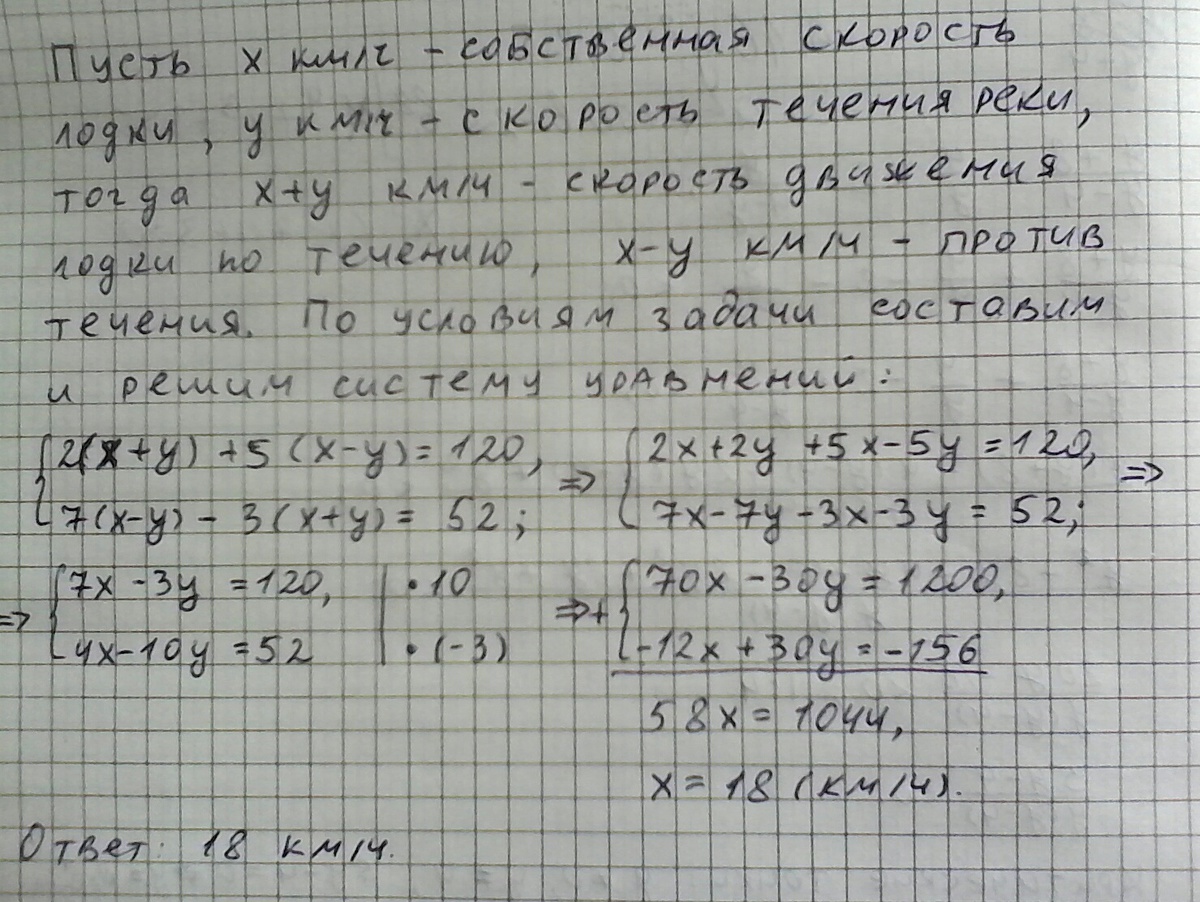 Пусть x км/ч - собственная скорость
лодки, y км/ч - скорость течения реки,
тогда x+y км/ч - скорость движения
лодки по течению, x-y км/ч - против
течения. По условиям задачи составим
и решим систему уравнений:
{2(x+y)+5(x-y)=120, => {2x+2y+5x-5y=120, =>
7(x-y)-3(x+y)=52; 7x-7y-3x-3y=52;
=> {7x-3y=120, |•10 =>+ {70x-30y=1200,
4x-10y=52 |•(-3) -12x+30y=-156
58x=1044,
x=18 (км/ч).
Ответ: 18 км/ч.